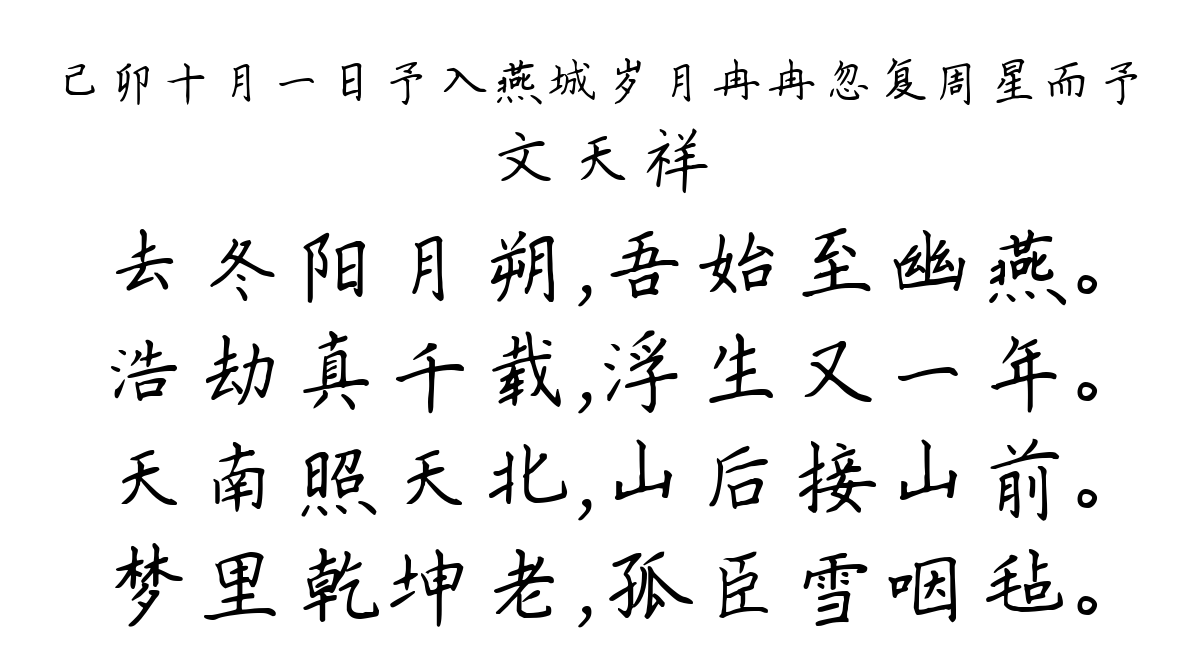 己卯十月一日予入燕城岁月冉冉忽复周星而予
文天祥
去冬阳月朔,吾始至幽燕。
浩劫真千载,浮生又一年。
天南照天北,山后接山前。
梦里乾坤老,孤臣雪咽毡。